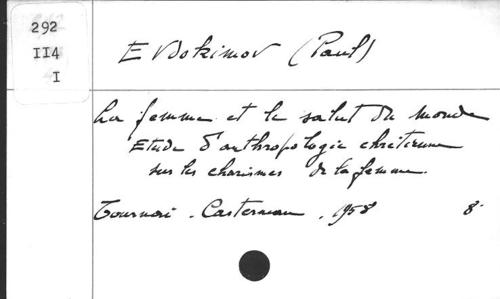 292
II4
I
Evdokimov (Paul)
La femme et le salut du monde
Etude d'anthropologie chrétienne
sur les charismes de la femme.
Tournai. Casterman. 1958 8°